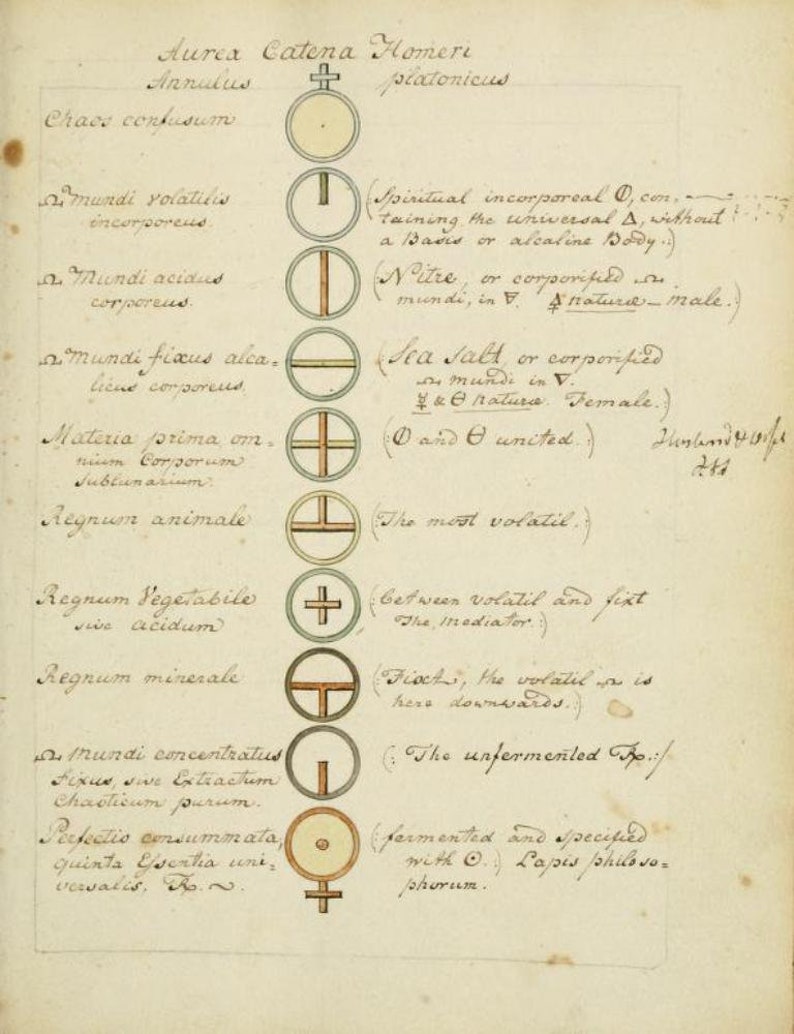 Aurea Catena Homeri
Annulus platonicus
Chaos confusum
☊ Mundi volatilis
incorporeus.
(Spiritual incorporeal ⦶, con,
taining the universal △, without
a Basis or alcaline Body.:)
☊ Mundi acidus
corporeus.
(Nitre, or corporified ☊
mundi, in ▽. 🜍 naturæ – male.)
☊ Mundi fixus alca=
licus corporeus.
(Sea Salt, or corporified
☊ mundi in ▽.
☿ & ⊖ naturæ. Female.)
Materia prima om=
nium Corporum
sublunarium.
(⦶ and ⊖ united.)
Husband & Wife
Regnum animale
(The most volatil.)
Regnum Vegetabile
sive acidum
(between volatil and fixt
The mediator.:)
Regnum minerale
(Fixt, the volatil ☊ is
here downwards.)
☊ Mundi concentratus
Fixus, sive Extractum
Chaoticum purum.
(: The unfermented :/
Perfectio consummata,
quinta Essentia uni=
versalis.
(fermented and specified
with ☉.) Lapis philoso=
phorum.